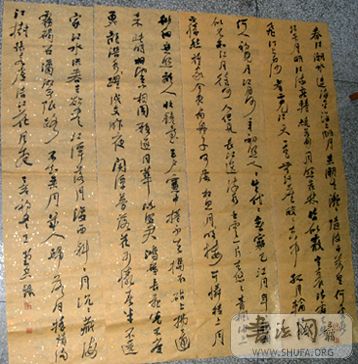 春江潮水连海平海上明月共潮生滟滟随波千万里何处春
江无月明江流宛转绕芳甸月照花林皆似霰空里流霜不觉
飞汀上白沙看不见江天一色无纤尘皎皎空中孤月轮江畔
何人初见月江月何年初照人人生代代无穷已江月年年
只相似不知江月待何人但见长江送流水白云一片去悠悠青枫浦上
不胜愁谁家今夜扁舟子何处相思明月楼可怜楼上月
徘徊应照离人妆镜台玉户帘中卷不去捣衣砧上拂还
来此时相望不相闻愿逐月华流照君鸿雁长飞光不度
鱼龙潜跃水成文昨夜闲潭梦落花可怜春半不还
家江水流春去欲尽江潭落月复西斜斜月沉沉藏海
雾碣石潇湘无限路不知乘月几人归落月摇情满
江树张若虚春江花月夜
书法网
WWW.SHUFA.ORG